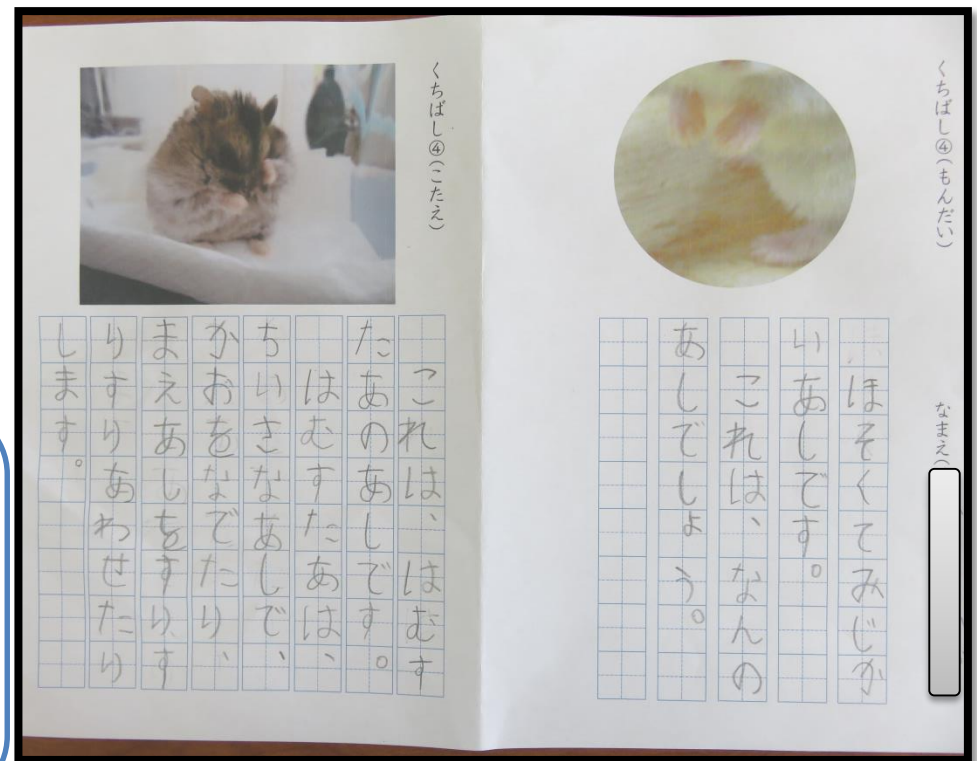 くちばし④(もんだい)
なまえ(
ほそくてみじか
いあしです。
これは、なんの
あしでしょう。
くちばし④(こたえ)
これは、はむす
たあのあしです。
はむすたあは、
ちいさなあしで、
かおをなでたり、
まえあしをすりす
りすりあわせたり
します。